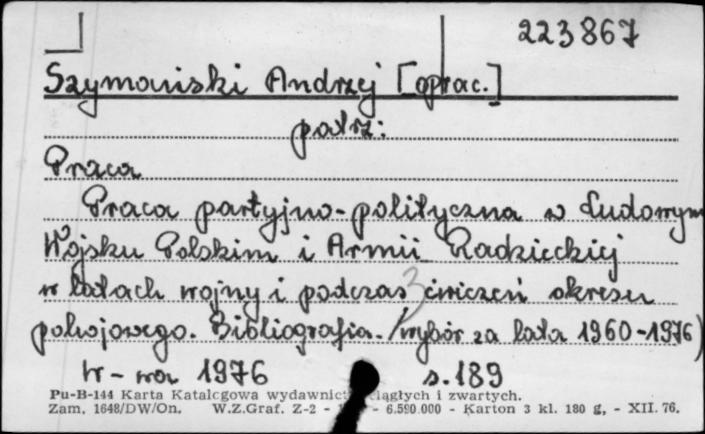 223867
Szymański Andrzej [oprac.]
patrz:
Praca
Praca partyjno-polityczna w Ludowym
Wojsku Polskim i Armii Radzieckiej
w latach wojny i podczas ćwiczeń okresu
pokojowego. Bibliografia. /wybór za lata 1960-1976)
W-wa 1976 s. 189
Pu-B-144 Karta Katalogowa wydawnict ciągłych i zwartych.
Zam. 1648/DW/On. W.Z.Graf. Z-2 - - 6.590.000 - Karton 3 kl. 180 g, - XII. 76.